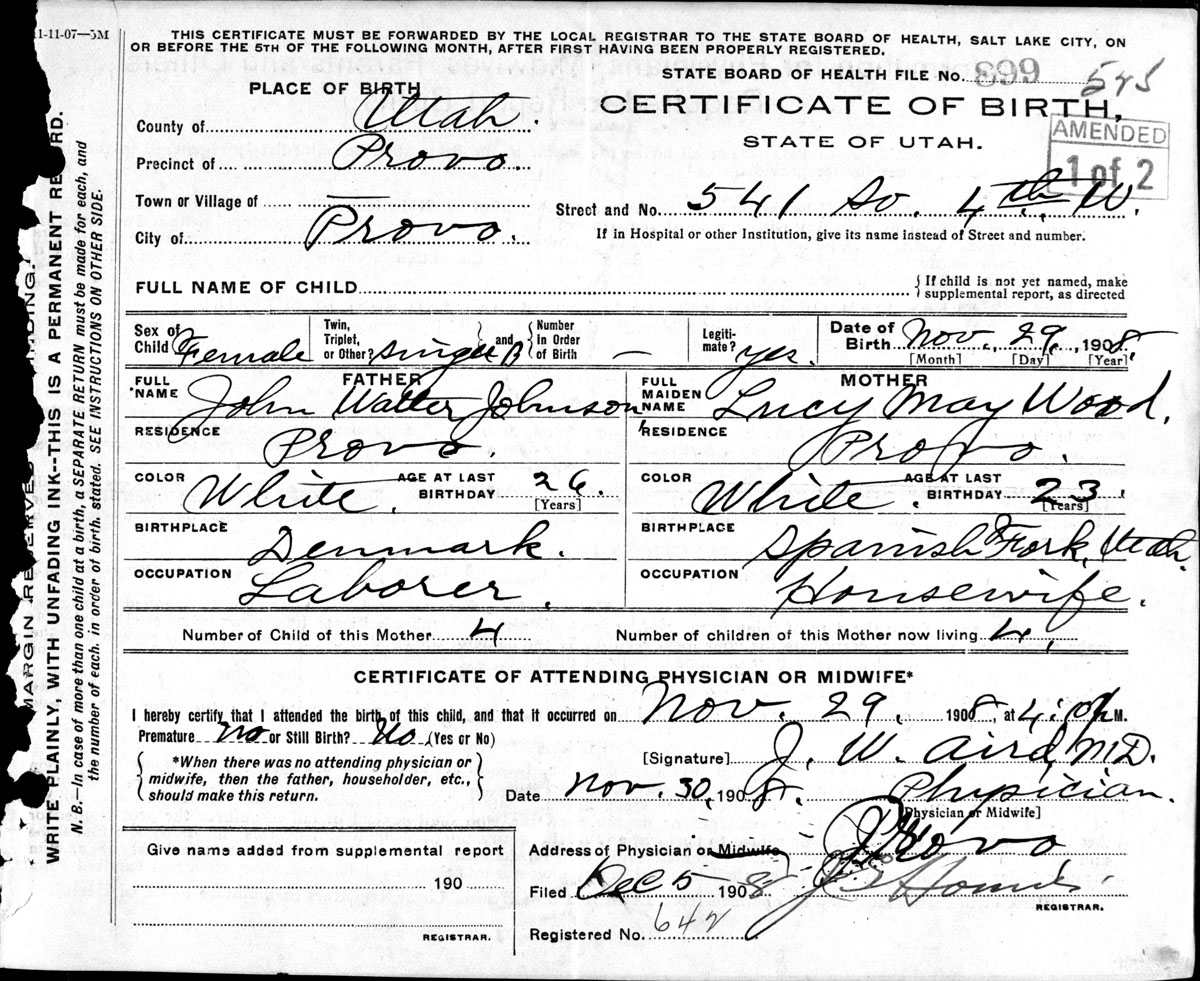 11-11-07—5M
THIS CERTIFICATE MUST BE FORWARDED BY THE LOCAL REGISTRAR TO THE STATE BOARD OF HEALTH, SALT LAKE CITY, ON
OR BEFORE THE 5TH OF THE FOLLOWING MONTH, AFTER FIRST HAVING BEEN PROPERLY REGISTERED.
STATE BOARD OF HEALTH FILE No. 899 545
PLACE OF BIRTH
CERTIFICATE OF BIRTH,
STATE OF UTAH.
AMENDED
1 of 2
County of Utah.
Precinct of Provo
Town or Village of —
City of Provo.
Street and No. 541 So. 4th. W.
If in Hospital or other Institution, give its name instead of Street and number.
FULL NAME OF CHILD
If child is not yet named, make
supplemental report, as directed
Sex of Child Female
Twin, Triplet, or Other? single and
Number In Order of Birth —
Legitimate? yes.
Date of Birth Nov. 29, 1908,
[Month] [Day] [Year]
FATHER
FULL NAME John Walter Johnson
RESIDENCE Provo.
COLOR White.
AGE AT LAST BIRTHDAY 26.
[Years]
BIRTHPLACE Denmark.
OCCUPATION Laborer.
MOTHER
FULL MAIDEN NAME Lucy May Wood.
RESIDENCE Provo.
COLOR White.
AGE AT LAST BIRTHDAY 23.
[Years]
BIRTHPLACE Spanish Fork, Utah.
OCCUPATION Housewife.
Number of Child of this Mother 4
Number of children of this Mother now living 4,
CERTIFICATE OF ATTENDING PHYSICIAN OR MIDWIFE*
I hereby certify that I attended the birth of this child, and that it occurred on Nov. 29, 1908, at 4: P M.
Premature No or Still Birth? No (Yes or No)
*When there was no attending physician or
midwife, then the father, householder, etc.,
should make this return.
[Signature] J. W. Aird, M.D.
Date Nov. 30, 1908. Physician.
[Physician or Midwife]
Address of Physician or Midwife Provo
Filed Dec 5 1908
REGISTRAR.
Registered No. 642
Give name added from supplemental report
190
REGISTRAR.
MARGIN RESERVED BINDING.
WRITE PLAINLY, WITH UNFADING INK--THIS IS A PERMANENT RECORD.
N. B.—In case of more than one child at a birth, a SEPARATE RETURN must be made for each, and
the number of each, in order of birth, stated. SEE INSTRUCTIONS ON OTHER SIDE.